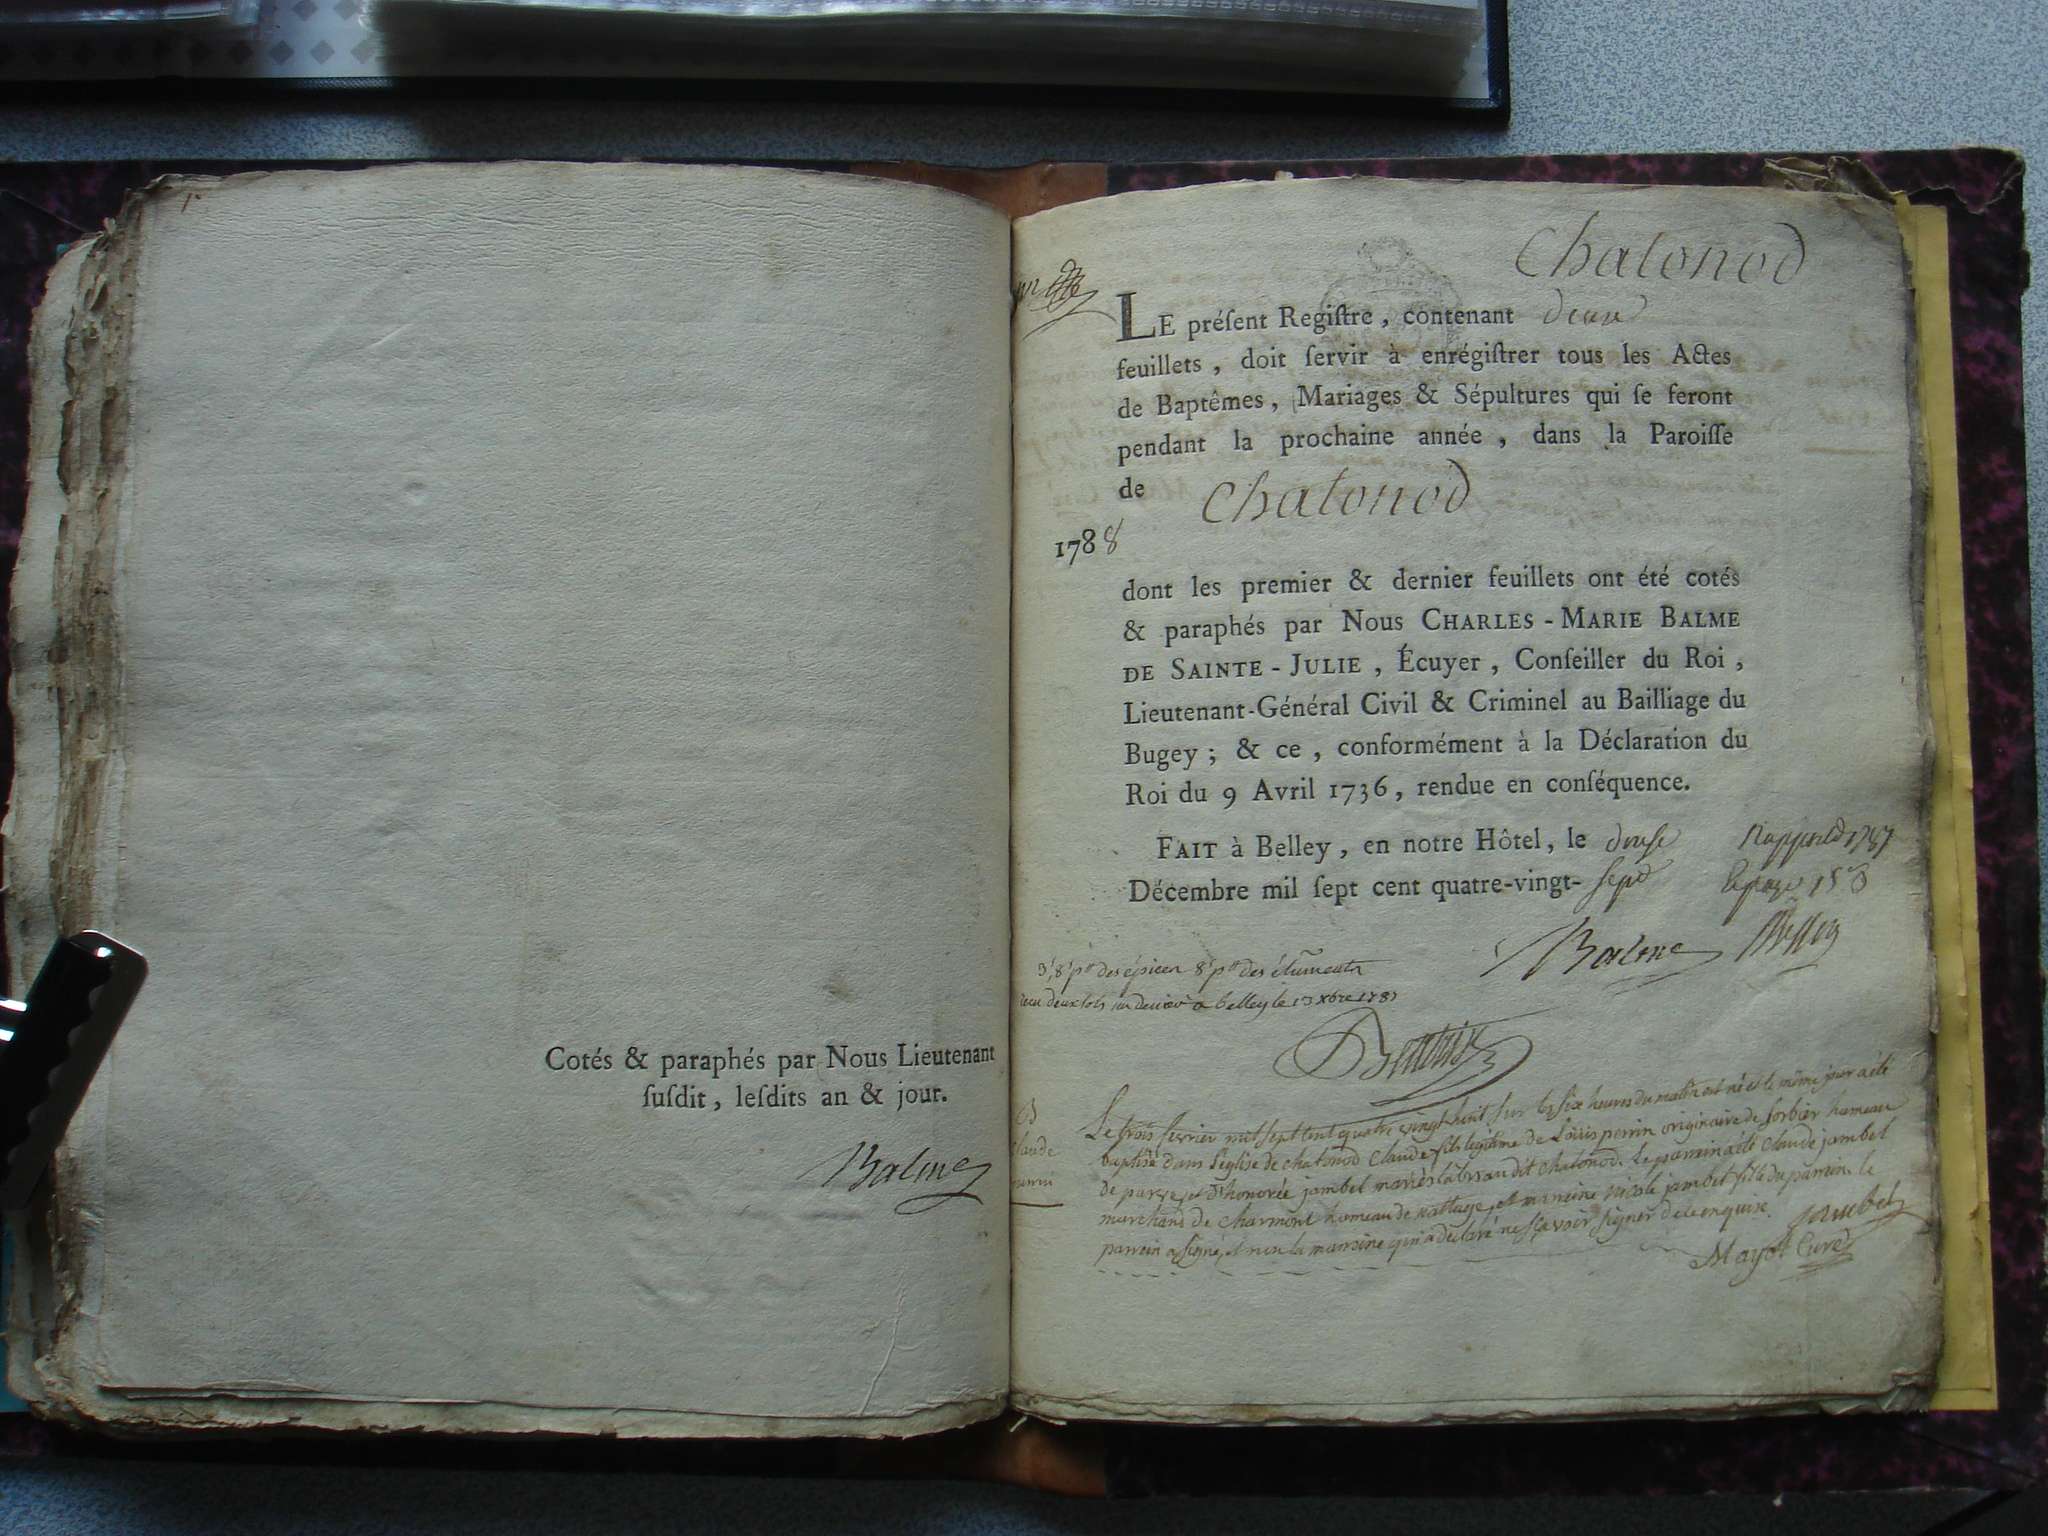 Cotés & paraphés par Nous Lieutenant
ſuſdit, leſdits an & jour.
Balme
Chatonod
LE préſent Regiſtre, contenant deux
feuillets, doit ſervir à enrégiſtrer tous les Actes
de Baptêmes, Mariages & Sépultures qui ſe feront
pendant la prochaine année, dans la Paroiſſe
de Chatonod
1788
dont les premier & dernier feuillets ont été cotés
& paraphés par Nous CHARLES-MARIE BALME
DE SAINTE-JULIE, Écuyer, Conſeiller du Roi,
Lieutenant-Général Civil & Criminel au Bailliage du
Bugey; & ce, conformément à la Déclaration du
Roi du 9 Avril 1736, rendue en conſéquence.
FAIT à Belley, en notre Hôtel, le douse
Décembre mil ſept cent quatre-vingt-ſept
Balme
a belley le 13 xbre 1787
Le trois fevrier mil sept cent quatre vingt huit sur les six heures du matin est né et le même jour a été
baptisé dans l'église de chatonod Claude fils legitime de Louis perrin originaire de sorbier hameau
de et honorée jambet mariés audit chatonod. Le parrain a été claude jambet
marchand de charmont hameau de et mareine nicole jambet fille du parrein. le
parrein a signé, et non la mareine qui a déclaré ne sçavoir signer de ce enquise. jambet
Mayot Curé